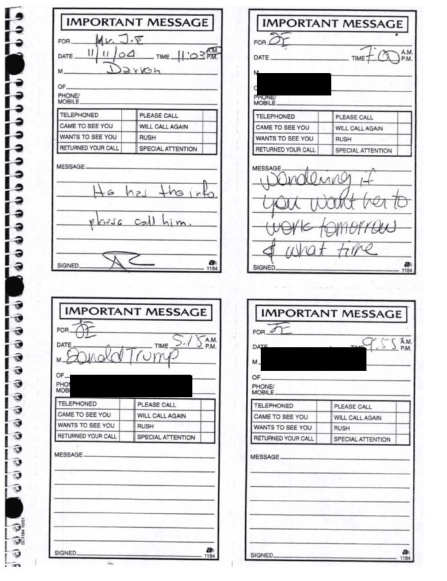 IMPORTANT MESSAGE
FOR Mr. J.E
DATE 11/11/04 TIME 11:03 A.M. P.M.
M Darren
OF
PHONE/
MOBILE
TELEPHONED PLEASE CALL
CAME TO SEE YOU WILL CALL AGAIN
WANTS TO SEE YOU RUSH
RETURNED YOUR CALL SPECIAL ATTENTION
MESSAGE
He has the info
please call him.
SIGNED
1184
IMPORTANT MESSAGE
FOR JE
DATE TIME 7:00 A.M. P.M.
PHONE/
MOBILE
TELEPHONED PLEASE CALL
CAME TO SEE YOU WILL CALL AGAIN
WANTS TO SEE YOU RUSH
RETURNED YOUR CALL SPECIAL ATTENTION
MESSAGE
Wondering if
you want her to
work tomorrow
& what time
SIGNED
1184
IMPORTANT MESSAGE
FOR JE
DATE TIME 5:15 A.M. P.M.
M Donald Trump
OF
TELEPHONED PLEASE CALL
CAME TO SEE YOU WILL CALL AGAIN
WANTS TO SEE YOU RUSH
RETURNED YOUR CALL SPECIAL ATTENTION
MESSAGE
SIGNED
1184
IMPORTANT MESSAGE
FOR JE
DATE TIME 9:55 A.M. P.M.
M
OF
PHONE/
MOBILE
TELEPHONED PLEASE CALL
CAME TO SEE YOU WILL CALL AGAIN
WANTS TO SEE YOU RUSH
RETURNED YOUR CALL SPECIAL ATTENTION
MESSAGE
SIGNED
1184